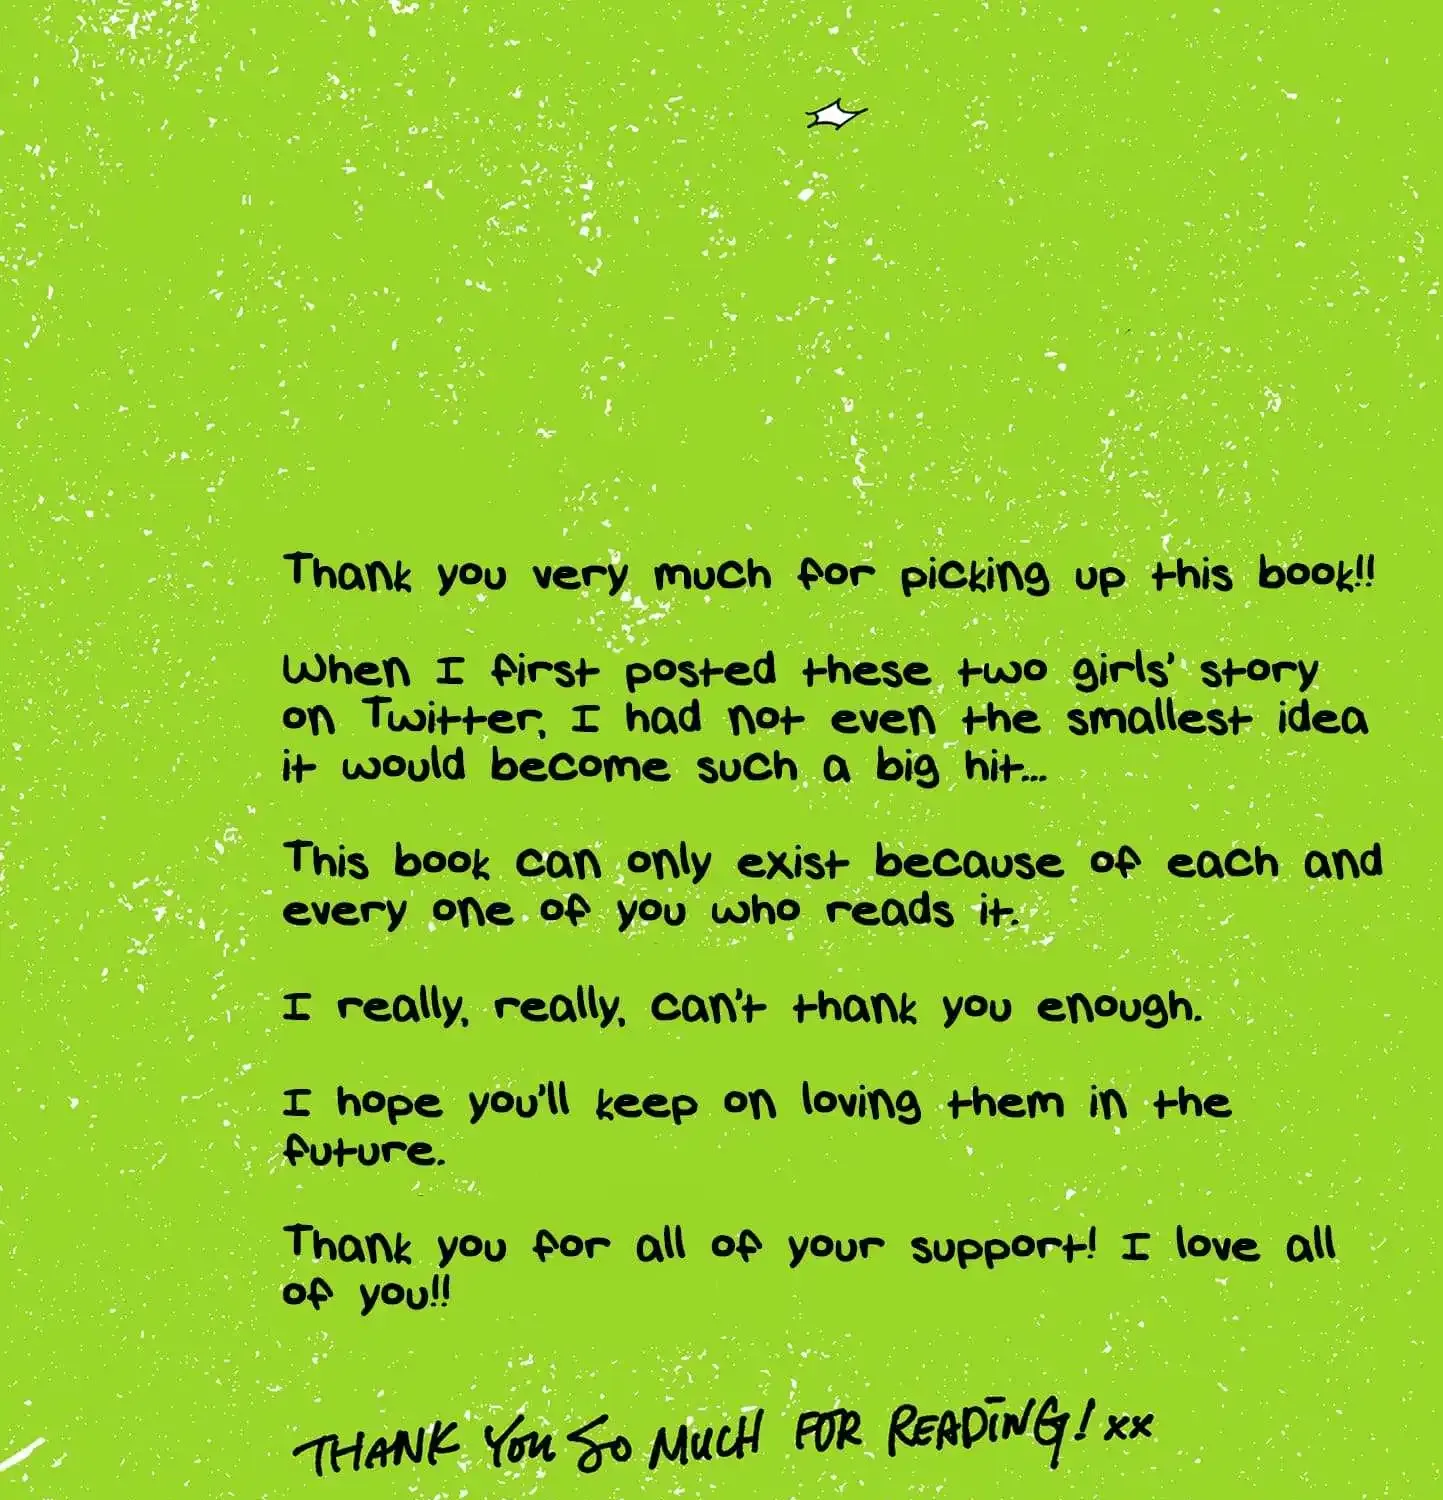 Thank you very much for picking up this book!!
When I first posted these two girls' story
on Twitter, I had not even the smallest idea
it would become such a big hit...
This book can only exist because of each and
every one of you who reads it.
I really, really, can't thank you enough.
I hope you'll keep on loving them in the
future.
Thank you for all of your support! I love all
of you!!
THANK YOU SO MUCH FOR READING! xx